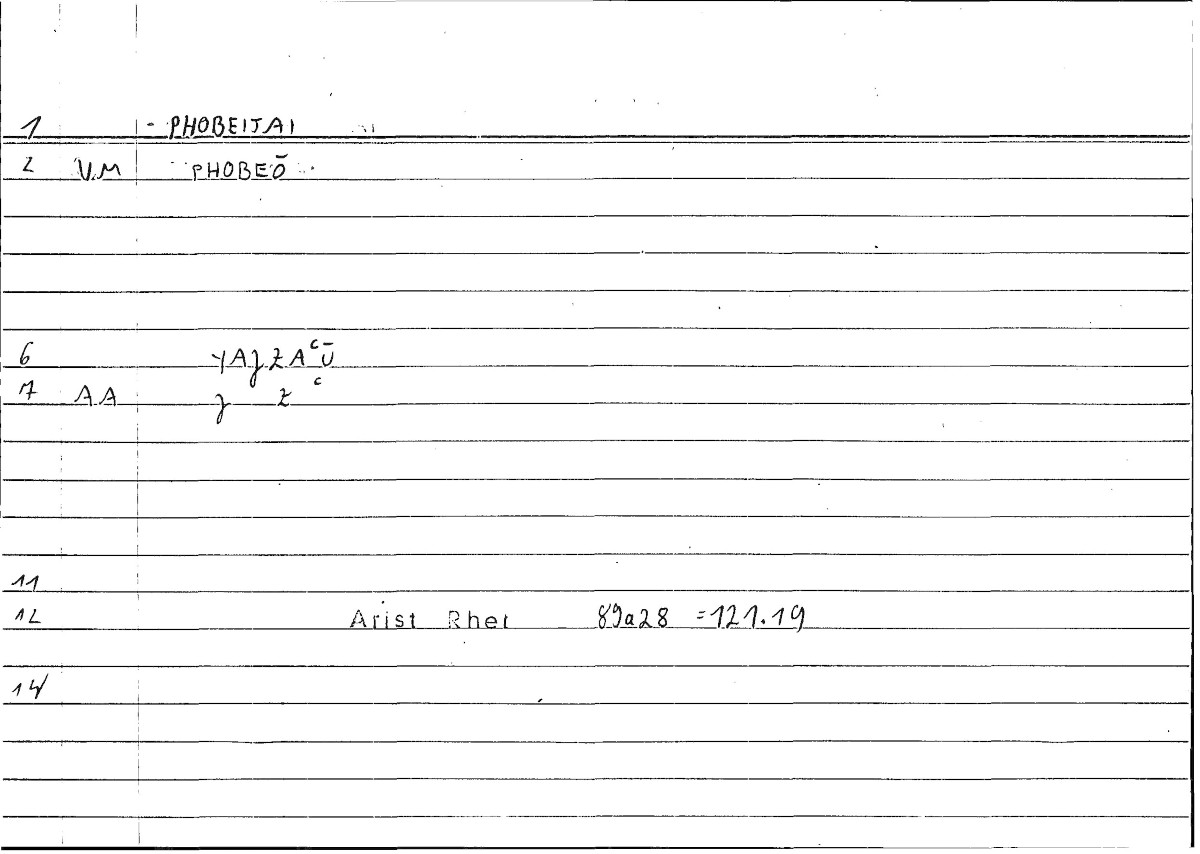 1 - PHOBEITAI
2 V.M PHOBEŌ
6 YAJZAʿŪ
7 AA J Z ʿ
11
12 Arist Rhet 89a28 =121.19
14